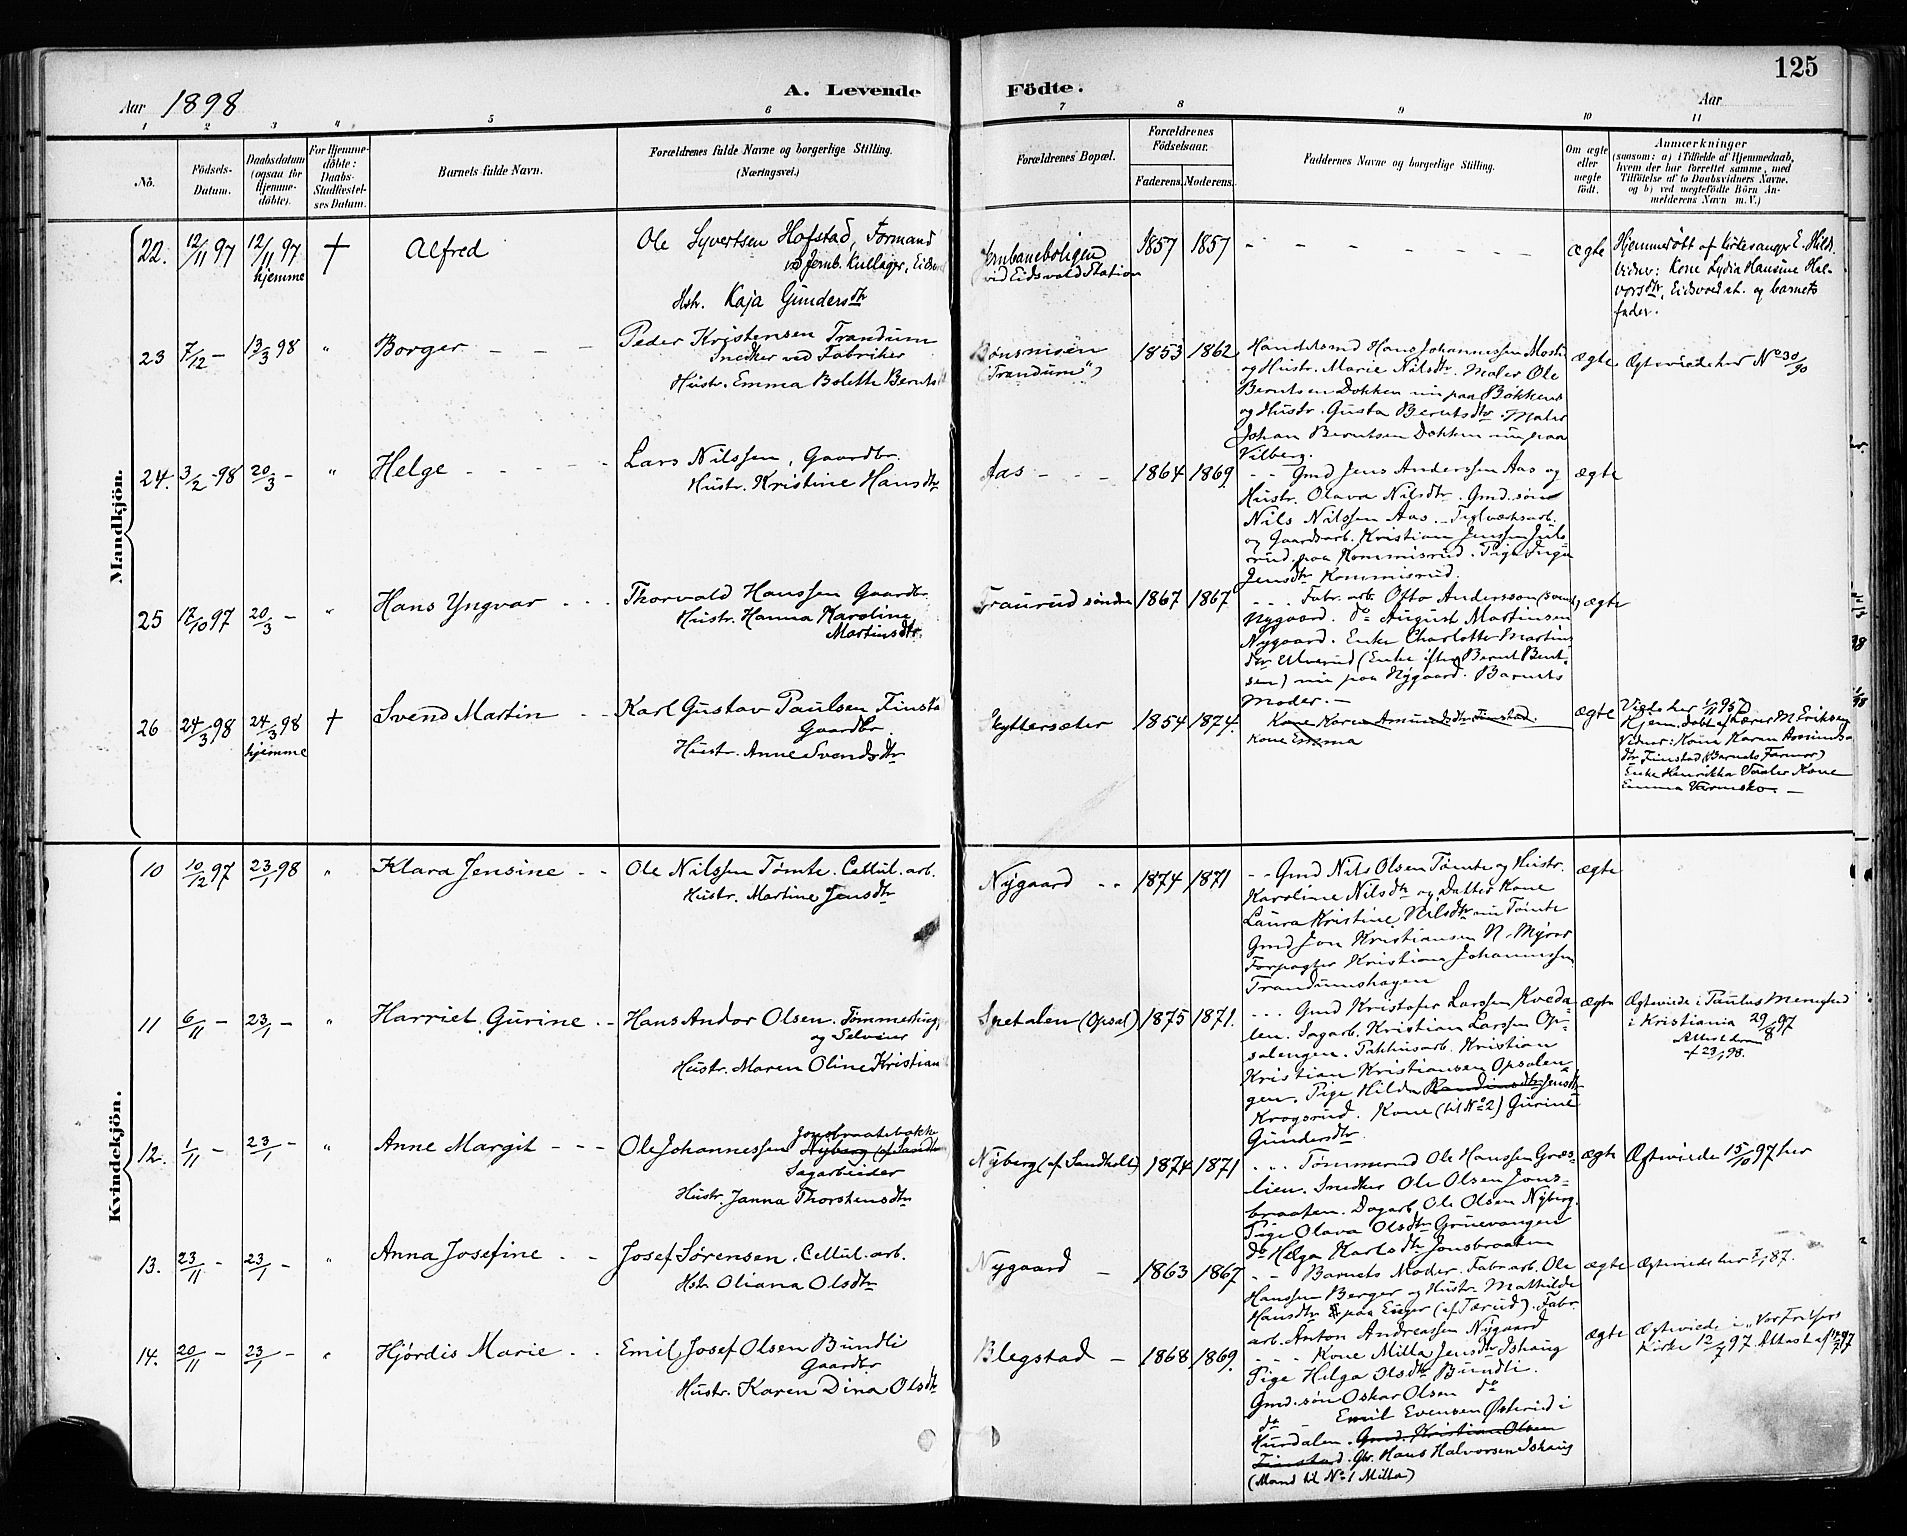 125
Aar 1898
A. Levende Födte.
Aar
1 2 3 4 5 6 7 8 9 10 11
No.
Födsels-
Datum.
Daabsdatum
(ogsaa for
Hjemme-
döbte).
For Hjemme-
döbte:
Daabs-
Stadfæstel-
ses Datum.
Barnets fulde Navn.
Forældrenes fulde Navne og borgerlige Stilling.
(Næringsvei.)
Forældrenes Bopæl.
Forældrenes
Födselsaar.
Faderens. Moderens.
Faddernes Navne og borgerlige Stilling.
Om ægte
eller
uægte
födt.
Anmærkninger
(saasom: a) i Tilfælde af Hjemmedaab,
hvem der har forrettet samme, med
Tilföielse af to Daabsvidners Navne,
og b) ved uægtefödte Börn An-
melderens Navn m. V.)
Mandkjön.
22. 12/11 97 12/11 97 † Alfred
hjemme
Ole Syvertsen Hofstad, Formand
v/ Jernb. Kullager, Eidsv
Hstr. Kaja Gundersdtr
Jernbaneboligen
ved Eidsvold Station
1857 1857 - - - - - - ægte
Hjemmedøbt af kirkesanger E. Hild.
Vidner: Kone Lydia Hansine Hal-
vorsdtr, Eidsvold st. og barnets
fader.
23 7/12 - 13/3 98 " Borger - - -
Peder Kristensen Trandum
Snedker ved Fabriker
Hustr. Emma Bolette Bernts
(Trandum")
1853 1862
Handelsmd Hans Johannessen Moste
og Hustr. Marie Nilsdtr. Maler Ole
Berntsen Dokken nu paa Bakken
og Hustr. Gusta Berntsdtr. Maler
Johan Berntsen Dokken nu paa
Vilberg.
ægte Ægteviede her No 30/90
24. 3/2 -98 20/3 - " Helge - - - -
Lars Nilssen, Gaardbr.
Hustr. Kristine Hansdtr
Aas - - - 1864 1869.
- - Gmd Jens Anderssen Aas og
Hustr. Olava Nilsdtr. Gmd. søn
Nils Nilssen Aas. - Teglværksarb.
og Gaardsarb. Kristian Jenssen Juls-
rud paa Kommisrud. Pige Inga
Jensdtr Kommisrud.
ægte
25 17/10 97 20/3 - " Hans Yngvar - - -
Thorvald Hanssen Gaardbr.
Hustr. Hanna Karoline
Martinsdtr.
Traurud søndre 1867 1867
- - - Fabr. arb. Otto Andersson
Nygaard. do August Martinsen
Nygaard. Enke Charlotte Martins
dtr Ulverud (Enke efter Bernt Bent-
sen) nu paa Nygaard. Barnets
Moder. -
ægte
26 24/3 98 24/3 98 † Svend Martin - -
hjemme
Karl Gustav Paulsen Finsta
Gaardbr.
Hustr. Anne Svendsdtr
Skyttersæter 1854 1874.
Kone Karen Amundsdtr Finstad.
Kone Emma
ægte
Hjem. døbt af Lærer M Eriksen
Vidner: Kone Karen Amunds-
dtr Finstad (Barnets Farmor)
Enke Henrikka Kone
Emma Varmsko. -
Kvindekjön.
10 10/12 97 23/1 98 " Klara Jensine - -
Ole Nilssen Tømte. Cellul. arb.
Hustr. Martine Jensdtr
Nygaard - - 1874 1871
- - Gmd Nils Olsen Tømte og Hustr.
Karoline Nilsdtr og Datter Kone
Laura Kristine Nilsdtr nu Tømte
Gmd Jon Kristiansen N. Myrer
Forpagter Kristian Johannessen
Trandumshagen
ægte
11 6/11 - 23/1 - " Harriet Gurine - -
Hans Andor Olsen. Tømmerhug.
og Selveier
Hustr. Maren Oline Kristian
Spetalen (Opsal) 1875 1871.
- - - Gmd Kristofer Larssen Kveda-
len. Sagarb. Kristian Larssen Op-
salengen. Pakhusarb. Kristian
Kristian Kristiansen Opsalen-
gen. Pige Hilda Randinsdtr Jensdtr
Krogsrud. Kone (til No 2) Gurine
Gundersdtr.
ægte
Ægteviede i Paulus Menighed
i Kristiania 29/8 97
Attest
af 23/1 98.
12. 1/11 - 23/1 - " Anne Margit - - -
Jonsbraatebakke
Ole Johannessen Nyberg (af Sandh
Sagarbeider
Hustr. Janna Thorstensdtr
Nyberg (af Sandholt) 1874 1871
- - - Tømmermd Ole Hanssen Græs-
lien. Snedker Ole Olsen Jons-
braaten. Dagarb. Ole Olsen Nyberg.
Pige Olava Olsdtr Gruevangen
do Helga Karlsdtr Jonsbraaten
ægte Ægteviede 15/10 97 her
13. 23/11 - 23/1 - " Anna Josefine - -
Josef Sørensen. Cellul. arb.
Hstr. Oliana Olsdtr
Nygaard - 1863 1867
- - Barnets Moder. Fabr arb. Ole
Hanssen Berger og Hustr. Mathilde
Hansdtr paa Enger (af Tærud). Fabr.
arb. Anton Andreassen Nygaard
ægte Ægteviede her 7/1 87.
14. 20/11 - 23/1 - " Hjørdis Marie - -
Emil Josef Olsen Bundli
Gaardbr
Hustr. Karen Dina Olsdtr
Blegstad - 1868 1869.
- - - Kone Milla Jensdtr Ishaug
Pige Helga Olsdtr Bundli.
Gmd. søn Oskar Olsen do
do - Emil Evensen Østerud i
Hurdalen. Gmd. Kristian Olsen
Finstad. Gbr. Hans Halvorsen Ishaug
(Mand til No 1 Milla)
ægte
Ægteviede i "Vor Frelsers
Kirke 12/7 97. Attest af 12/7 97